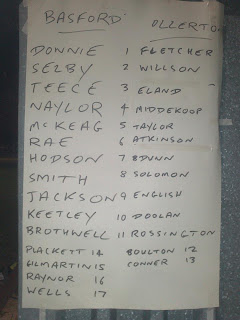 BASFORD OLLERTO
DONNIE 1 FLETCHER
SELBY 2 WILLSON
TEECE 3 ELAND
NAYLOR 4 MIDDEKOOP
MCKEAG 5 TAYLOR
RAE 6 ATKINSON
HODSON 7 BDUNN
SMITH 8 SOLOMON
JACKSON 9 ENGLISH
KEETLEY 10 DOOLAN
BROTHWELL 11 ROSSINGTON
PLACKETT 14 BOULTON 12
GILMARTIN 15 CONNER 13
RAYNOR 16
WELLS 17